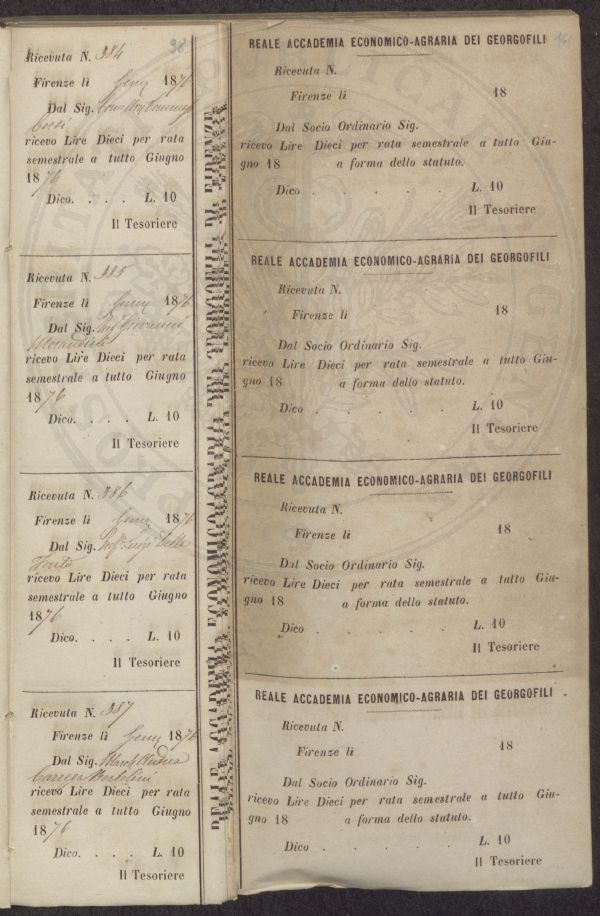 38
Ricevuta N. 384
Firenze li Genn 1876
Dal Sig.
ricevo Lire Dieci per rata
semestrale a tutto Giugno
1876
Dico. . . . L. 10
Il Tesoriere
Ricevuta N. 385
Firenze li Genn 1876
Dal Sig. Giovanni
ricevo Lire Dieci per rata
semestrale a tutto Giugno
1876
Dico. . . . L. 10
Il Tesoriere
Ricevuta N. 386
Firenze li Genn 1876
Dal Sig. Luigi Della
ricevo Lire Dieci per rata
semestrale a tutto Giugno
1876
Dico. . . . L. 10
Il Tesoriere
Ricevuta N. 387
Firenze li Genn 1876
Dal Sig. March Andrea
Carrega Bertolini
ricevo Lire Dieci per rata
semestrale a tutto Giugno
1876
Dico. . . . L. 10
Il Tesoriere
REALE ACCADEMIA ECONOMICO-AGRARIA DEI GEORGOFILI DI FIRENZE
REALE ACCADEMIA ECONOMICO-AGRARIA DEI GEORGOFILI
Ricevuta N.
Firenze li 18
Dal Socio Ordinario Sig.
ricevo Lire Dieci per rata semestrale a tutto Giu-
gno 18 a forma dello statuto.
Dico . . . . . L. 10
Il Tesoriere
REALE ACCADEMIA ECONOMICO-AGRARIA DEI GEORGOFILI
Ricevuta N.
Firenze li 18
Dal Socio Ordinario Sig.
ricevo Lire Dieci per rata semestrale a tutto Giu-
gno 18 a forma dello statuto.
Dico . . . . . L. 10
Il Tesoriere
REALE ACCADEMIA ECONOMICO-AGRARIA DEI GEORGOFILI
Ricevuta N.
Firenze li 18
Dal Socio Ordinario Sig.
ricevo Lire Dieci per rata semestrale a tutto Giu-
gno 18 a forma dello statuto.
Dico . . . . . L. 10
Il Tesoriere
REALE ACCADEMIA ECONOMICO-AGRARIA DEI GEORGOFILI
Ricevuta N.
Firenze li 18
Dal Socio Ordinario Sig.
ricevo Lire Dieci per rata semestrale a tutto Giu-
gno 18 a forma dello statuto.
Dico . . . . . L. 10
Il Tesoriere